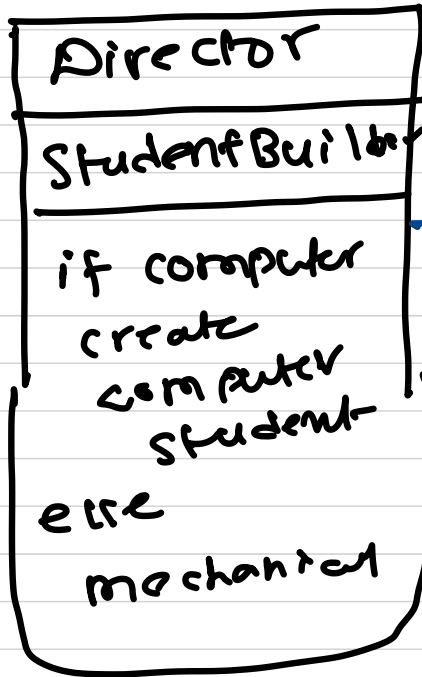 Director
StudentBuilder
if computer
create
computer
student
else
mechanical